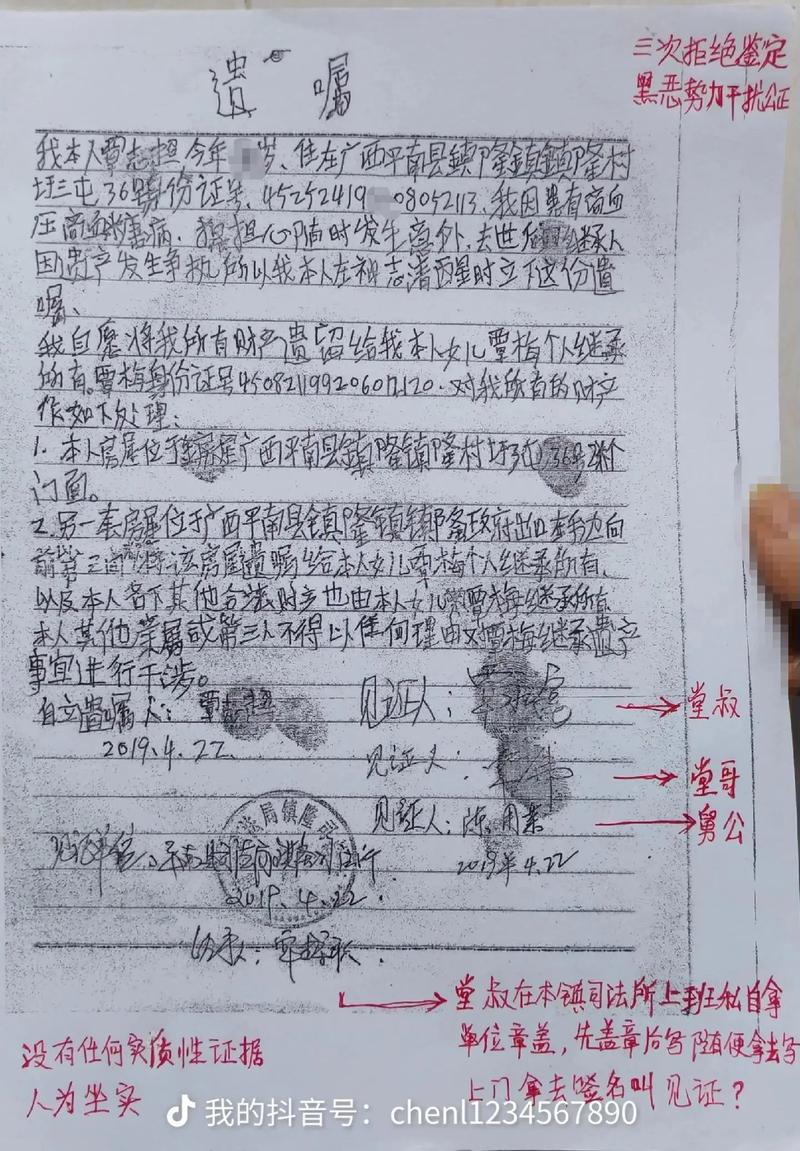 三次拒绝鉴定
黑恶势力干扰公证
遗嘱
我本人覃志担今年 岁、住在广西平南县镇隆镇镇隆村
圩三屯36号身份证号、45252419 08052113、我因患有高血
压高血糖病、担心随时发生意外、去世后继承人
因遗产发生争执所以我本人在神志清醒时立下这份遗
嘱、
我自愿将我所有财产遗留给我本人女儿覃梅个人继承
所有。覃梅身份证号 对我所有的财产
作如下处理:
1、本人房屋位于 广西平南县镇隆镇镇隆村圩 36号 个
门面。
2、另一套房屋位于广西平南县镇隆镇镇隆政府出口 边向
前第三间 将该房屋遗嘱给本人女儿覃梅个人继承所有、
以及本人名下其他合法财产也由本人女儿覃梅继承所有
本人其他亲属或第三人不得以任何理由对覃梅继承遗产
事宜进行干涉。
自立遗嘱人:覃志担
2019.4.22
见证人:
堂叔
见证人:
堂哥
见证人:
舅公
2019年4.22
局镇隆司
见证单位:平南县司法局镇隆司法所
2019.4.22.
堂叔在本镇司法所上班私自拿
单位章盖,先盖章后写随便拿去写
上门拿去签名叫见证?
没有任何实质性证据
人为坐实
我的抖音号:chenl1234567890